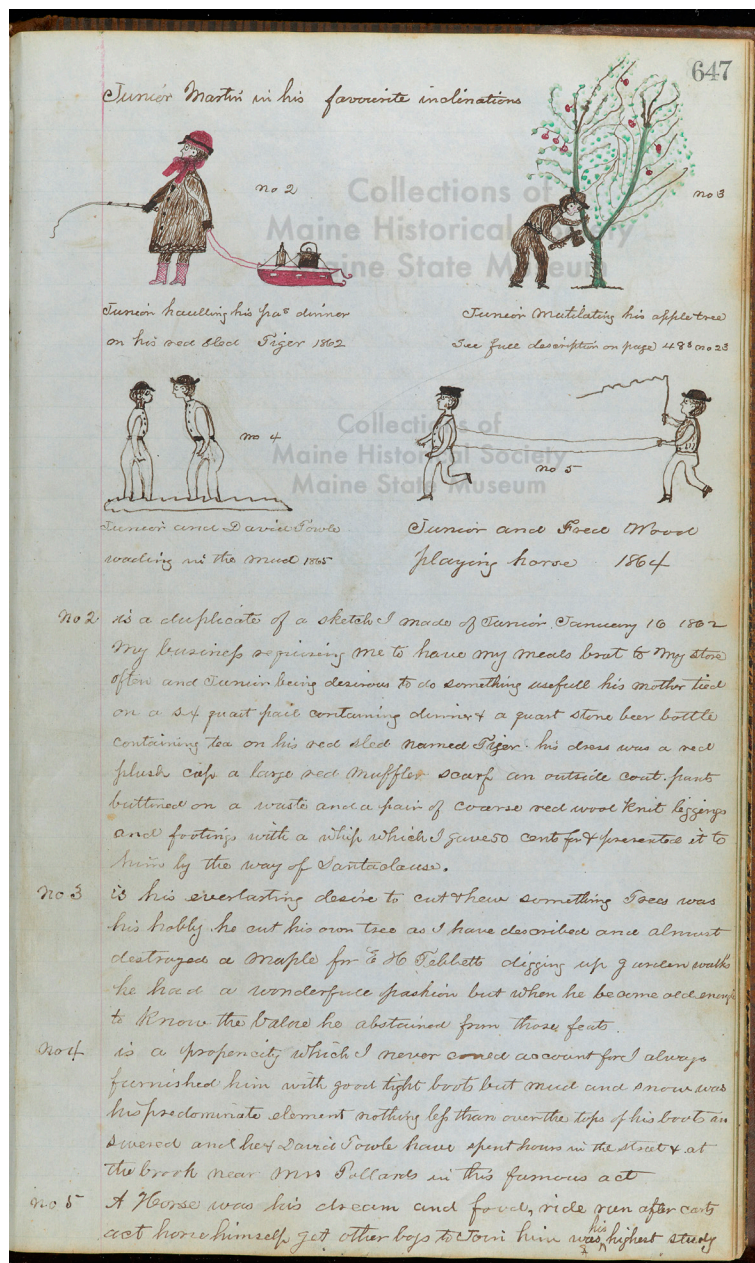 647
Junior Martin in his favourite inclinations
no 2
no 3
Collections of
Maine Historical Society
Maine State Museum
Junior haulling his pas dinner
on his red sled Tiger 1862
Junior Mutilating his apple tree
See full description on page 483 no 23
no 4
no 5
Collections of
Maine Historical Society
Maine State Museum
Junior and David Towle
wading in the mud 1865
Junior and Fred Wood
playing horse 1864
no 2 is a duplicate of a sketch I made of Junior January 16 1862
My business requiring me to have my meals brat to My store
often and Junior being desirous to do something usefull his mother tied
on a six quart pail containing dinner & a quart stone beer bottle
containing tea on his red sled named Tiger. his dress was a red
plush cap a large red muffler scarf an outside coat. pants
buttined on a waste and a pair of coarse red wool knit leggings
and footings with a whip which I gave 50 cents for & presented it to
him by the way of Santaclause.
no 3 is his everlasting desire to cut & hew something Trees was
his hobby he cut his own tree as I have described and almost
destroyed a Maple for E H Tebbets digging up garden walks
he had a wonderfull pashion but when he become old enough
to know the Valare he abstained from those feats.
no 4 is a propencity which I never coned account for I always
furnished him with good tight boots but mud and snow was
his predominate element nothing less than over the tops of his boots an
swered and he & David Towle have spent hours in the street & at
the brook near Mrs Pollards in this famous act
no 5 A Horse was his dream and food, ride run after carts
act horse himself get other boys to Join him was his highest study